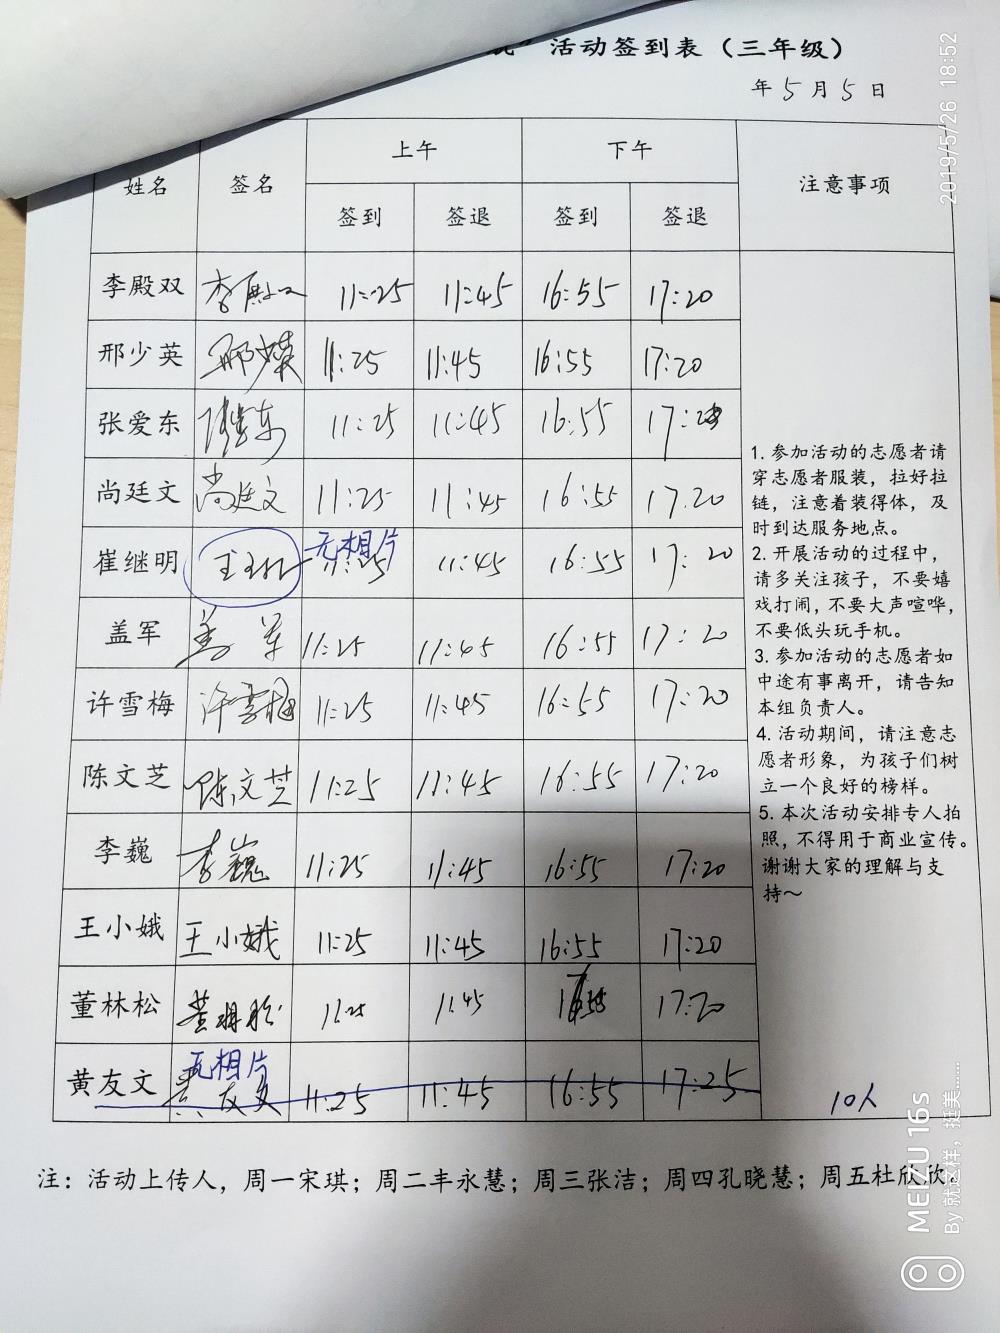 ”活动签到表（三年级）
年5月5日
姓名 签名 上午 下午 注意事项
签到 签退 签到 签退
李殿双 李殿双 11:25 11:45 16:55 17:20
邢少英 邢少英 11:25 11:45 16:55 17:20
张爱东 张爱东 11:25 11:45 16:55 17:20
尚廷文 尚廷文 11:25 11:45 16:55 17.20
无相片
崔继明 11:25 11:45 16:55 17:20
盖军 盖军 11:25 11:45 16:55 17:20
许雪梅 许雪梅 11:25 11:45 16:55 17:20
陈文芝 陈文芝 11:25 11:45 16:55 17:20
李巍 李巍 11:25 11:45 16:55 17:20
王小娥 王小娥 11:25 11:45 16:55 17:20
董林松 董林松 11:25 11:45 16:55 17:20
无相片
黄友文 黄友文 11:25 11:45 16:55 17:25
1. 参加活动的志愿者请
穿志愿者服装，拉好拉
链，注意着装得体，及
时到达服务地点。
2. 开展活动的过程中，
请多关注孩子，不要嬉
戏打闹，不要大声喧哗，
不要低头玩手机。
3. 参加活动的志愿者如
中途有事离开，请告知
本组负责人。
4. 活动期间，请注意志
愿者形象，为孩子们树
立一个良好的榜样。
5. 本次活动安排专人拍
照，不得用于商业宣传。
谢谢大家的理解与支
持～
10人
注：活动上传人，周一宋琪；周二丰永慧；周三张洁；周四孔晓慧；周五杜欣欣。
2019/5/26 18:52
MEIZU 16s
By 就这样，挺美......